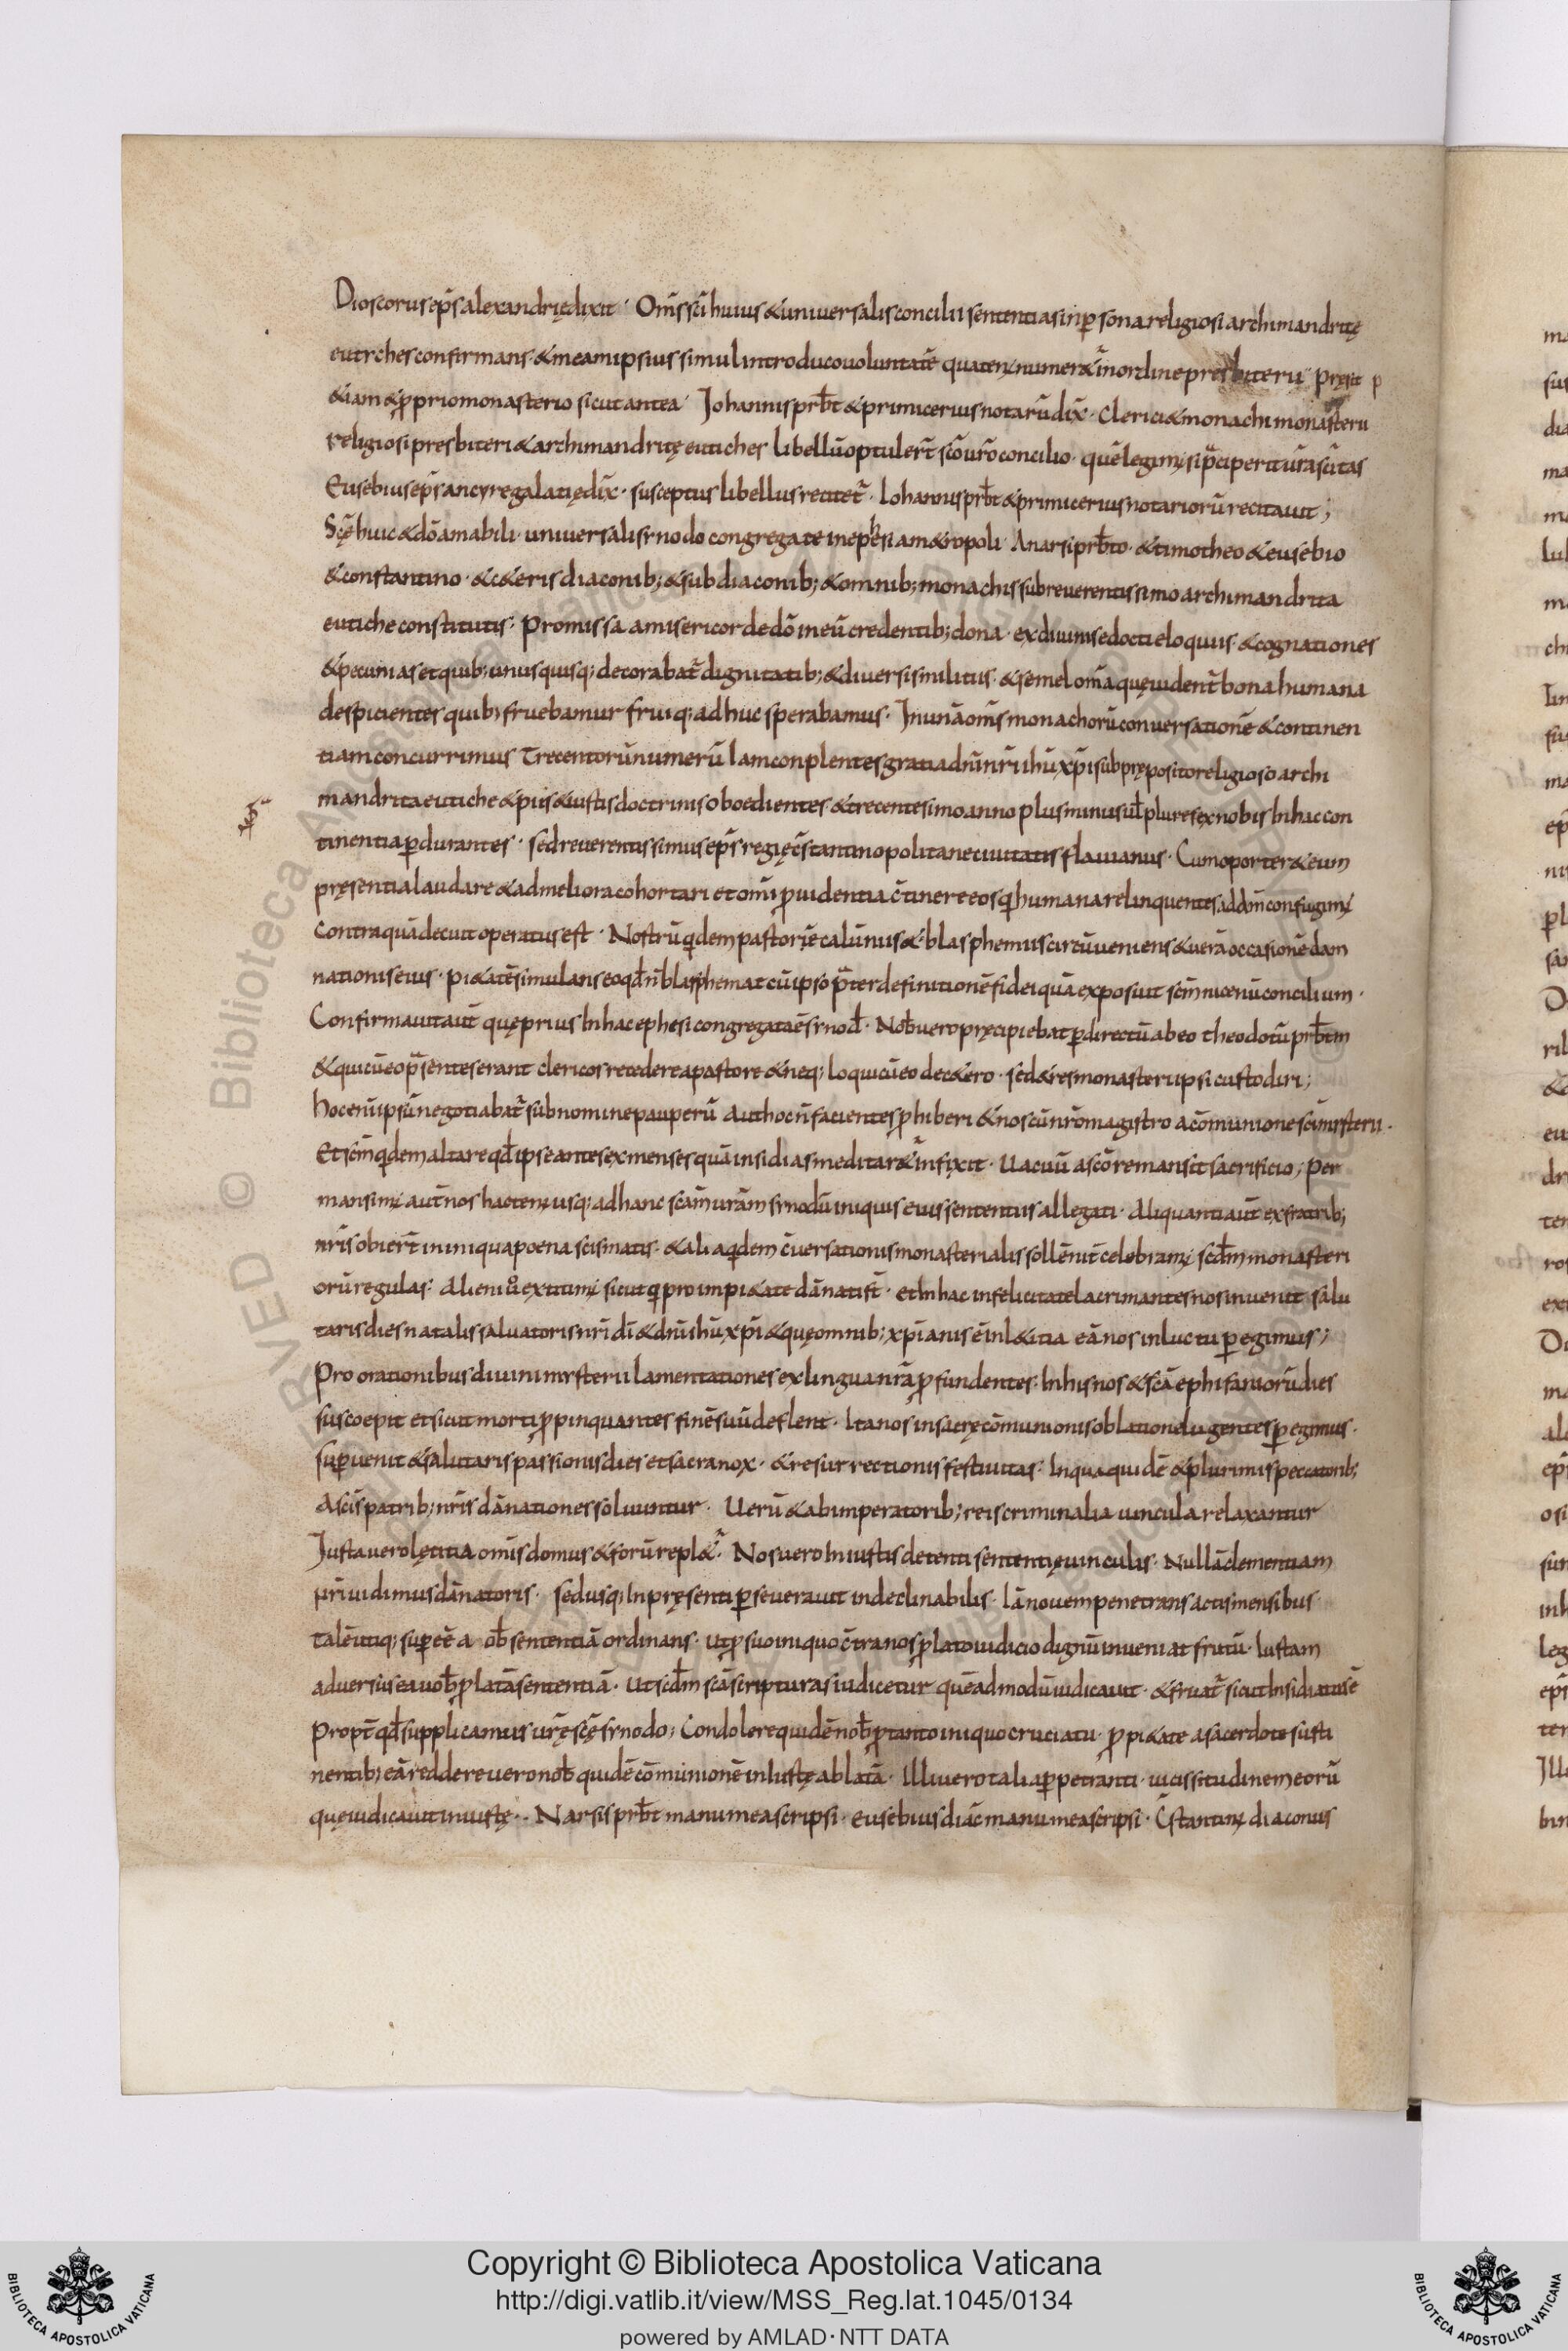 Dioscorus ep̄s alexandrię dixit · Om̄s s̄ci huius & universalis concilii sententias in ꝑsona religiosi archimandritę
eutyches confirmans · & meam ipsius simul introduco voluntatē quaten; numer&ur in ordine presbiterū pręsit
& iam & ꝓprio monasterio sicut antea · Johannis prb̄t & primicerius notarū dix̄ · Clerici & monachi monasterii
religiosi presbiteri & archimandritę euticher libellū optulert̄ sc̄o ur̄o concilio · quē legim;
Eusebius ep̄s ancyre galatię dix̄ · susceptus libellus recitet᷑ · Iohannis prb̄t & primicerius notariorū recitavit ;
Sc̄ę huic & dō amabili · universali synodo congregate in ephesi am&ropoli · A narsi prb̄to · & timotheo & eusebio
& constantino · & c&eris diaconib; & subdiaconib; & omnib; monachis sub reverentissimo archimandrita
eutiche constitutis · Promissa a misericorde dō in eū credentib; dona · ex divinis edocti eloquiis · & cognationes
& pecunias et quib; unusquisq; decorabat᷑ dignitatib; & diversis militiis · & semel om̄a quę vident᷑ bona humana
despicientes quib; fruebamur fruiq; adhuc sperabamus · In unā om̄s monachorū conversationē & continen
tiam concurrimus Trecentorū numerū Iam conplentes gratia dn̄i nr̄i ihū xp̄i sub pręposito religioso archi
mandrita eutiche & piis & iustis doctrinis oboedientes · & trecentesimo anno plus minus ul̄ plures ex nobis In hac con
tinentia ꝑdurantes · sed reverentissimus ep̄s regię c̄stantinopolitane civitatis flavianus · Cum oporter& eum
pręsentia laudare & ad meliora cohortari et om̄i ꝓvidentia c̄tinere eos qi humana relinquentes ad dm̄ confugim;
Contra quā decuit operatus est · Nostrū qidem pastorē calūniis & blasphemiis circūveniens & verā occasionē dam
nationis eius · pi&atē simulans eo qd̄ n̄ blasphemat cū ipso p̄ter definitionē fidei quā exposuit sc̄m nicenū concilium ·
Confirmavit aut̄ quę prius In hac ephesi congregata ē synod̄ · Nob̄ vero pręcipiebat ꝑ directū ab eo theodotū prb̄tm
& qui cū eo p̄sentes erant clericos recedere a pastore & neq; loqui cū eo de c&ero · sed & res monasterii ipsi custodiri ;
hoc eni ipsū negotiabat᷑ sub nomine pauperū Aut hoc n̄ facientes ꝓhiberi & nos cū nr̄o magistro a cōmunione sc̄i mysterii ·
Et sc̄m qidem altare qd̄ ipse ante sex menses quā insidias meditar&ur infixit · Vacuū a sc̄o remansit sacrificio ; Per
mansim; aut̄ nos hacten; usq; ad hanc sc̄am ur̄am synodū iniquis eius sententiis allegati · Aliquanti aut̄ ex fratrib;
nr̄is obiert̄ in iniqua poena scismatis · & alia qidem c̄versationis monasterialis sollēnit̄ celebram; scd̄m monasteri
orū regulas · Alieni v̊ extitim; sicut qi pro impi&ate dānati st̄ · et In hac infelicitate lacrimantes nos invenit salu
taris dies natalis salvatoris nr̄i dī & dn̄i ihū xp̄i & quę omnib; xp̄ianis ē in l&itia eā nos in luctu ꝑegimus ;
Pro orationibus divini mysterii lamentationes ex lingua nr̄a ꝓfundentes · In his nos & sc̄a ephifaniorū dies
suscoepit et sicut morti ꝓpinquantes finē suū deflent · Ita nos in sacrę cōmunionis oblatione lugentes ꝑegimus ·
suꝑvenit & salutaris passionis dies et sacra nox · & resurrectionis festivitas · In qua quidē & plurimis peccatorib;
A sc̄is patrib; nr̄is dānationes solvuntur · Verū & ab imperatorib; reis criminalia vincula relaxantur
Iusta vero lętitia om̄is domus & forū repl&ur · Nos vero In iustis detenti sententię vinculis · Nullā clementiam
ur̄i vidimus dānatoris · sed usq; In pręsenti ꝑseveravit indeclinabilis · Iā novem penetrans actis mensibus ·
talē utiq; suꝑ eē a ob̄ sententiā ordinans · ut ꝓ suo iniquo c̄tra nos ꝓlato iudicio dignū inveniat frutū · Iustam
adversus ea vob̄ ꝓlatā sententiā · Ut scd̄m scā scripturas iudicetur quēadmodū iudicavit · & fruat᷑ sicut Insidiatus ē
Propt̄ qd̄ supplicamus ur̄ę sc̄ę synodo ; Condolere quidē nob̄ ꝓ tanto iniquo cruciatu · ꝓ pi&ate a sacerdote susti
nentib; eā reddere vero nob̄ quidē cōmunionē In Iustę ablatā · Illi vero talia ꝑpetranti · vicissitudinem eorū
quę iudicavit iniustę · · Narsis prb̄t manu mea scripsi · eusebius diāc manu mea scripsi · C̄stantin; diaconus
Copyright © Biblioteca Apostolica Vaticana
http://digi.vatlib.it/view/MSS_Reg.lat.1045/0134
powered by AMLAD · NTT DATA